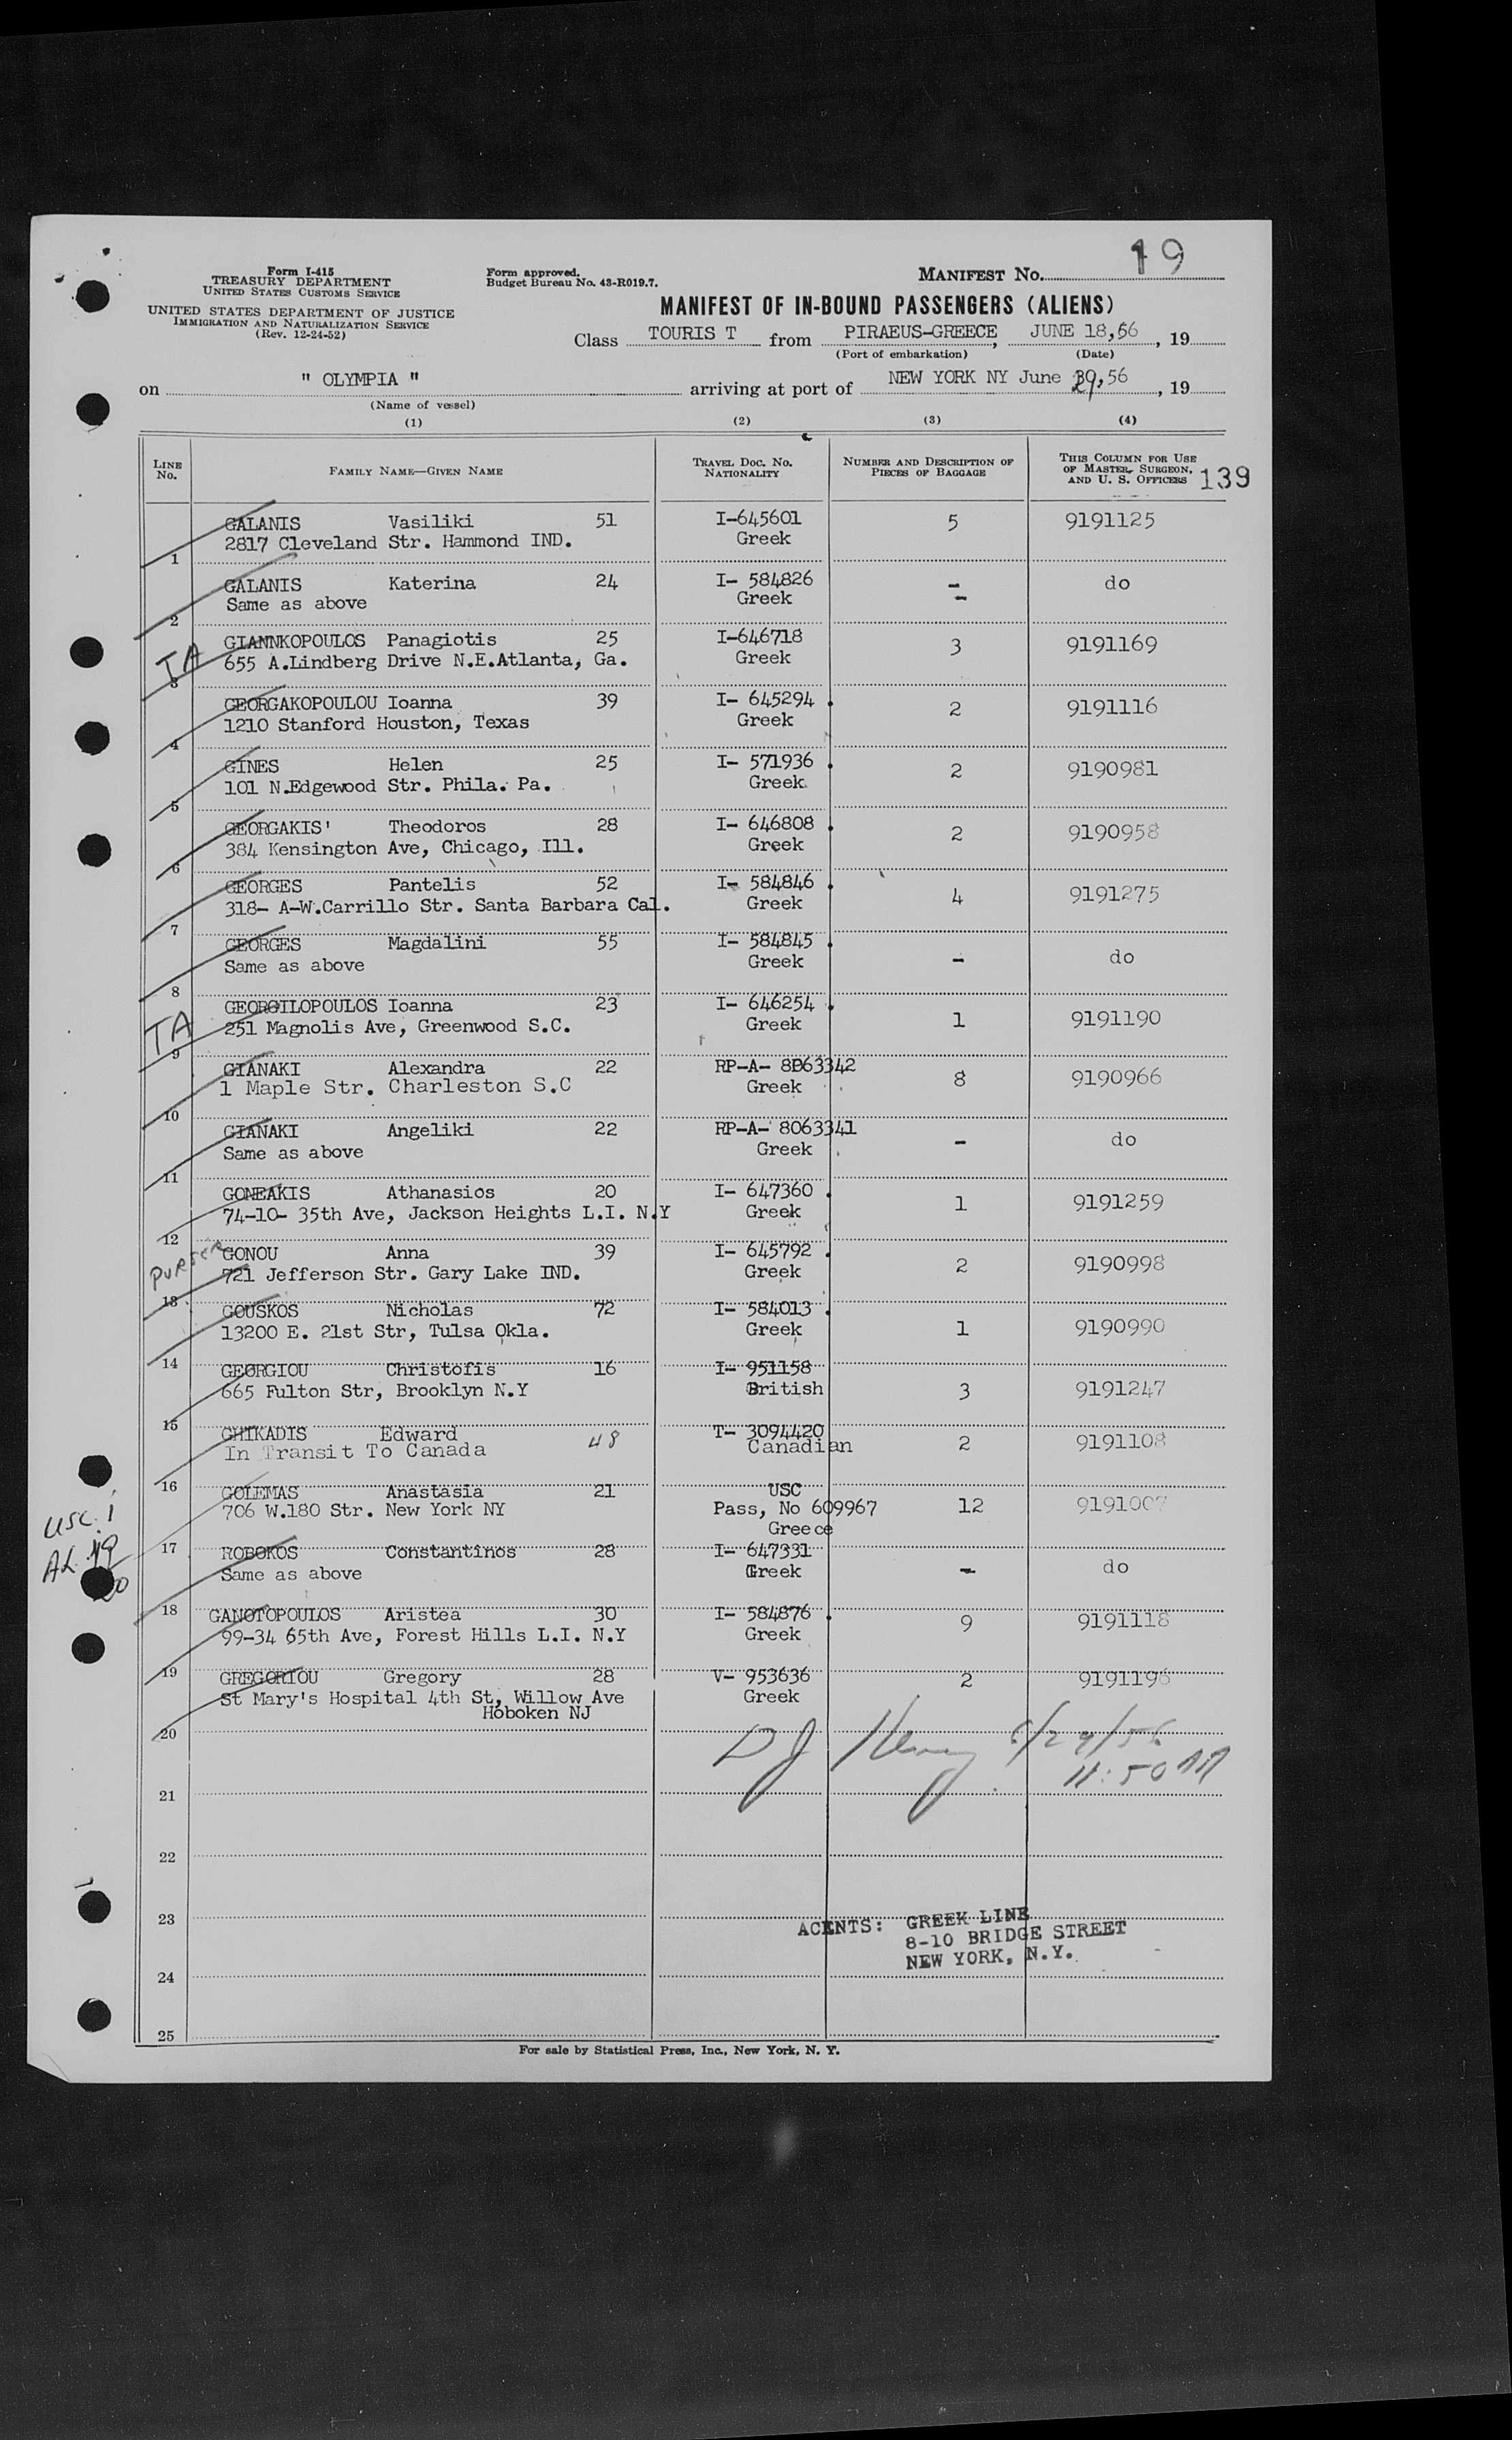 Form I-415
TREASURY DEPARTMENT
UNITED STATES CUSTOMS SERVICE
UNITED STATES DEPARTMENT OF JUSTICE
IMMIGRATION AND NATURALIZATION SERVICE
(Rev. 12-24-52)
Form approved.
Budget Bureau No. 43-R019.7.
MANIFEST No. 19
MANIFEST OF IN-BOUND PASSENGERS (ALIENS)
Class TOURIS T from PIRAEUS-GREECE, JUNE 18,56, 19
(Port of embarkation) (Date)
on " OLYMPIA " arriving at port of NEW YORK NY June 29,56, 19
(Name of vessel)
(1) (2) (3) (4)
LINE No. FAMILY NAME—GIVEN NAME TRAVEL DOC. No. NATIONALITY NUMBER AND DESCRIPTION OF PIECES OF BAGGAGE THIS COLUMN FOR USE OF MASTER, SURGEON, AND U. S. OFFICERS 139
GALANIS Vasiliki 51 I-645601 5 9191125
2817 Cleveland Str. Hammond IND. Greek
1
GALANIS Katerina 24 I- 584826 - do
Same as above Greek -
2
GIANNKOPOULOS Panagiotis 25 I-646718 3 9191169
TA 655 A.Lindberg Drive N.E.Atlanta, Ga. Greek
3
GEORGAKOPOULOU Ioanna 39 I- 645294 2 9191116
1210 Stanford Houston, Texas Greek
4
GINES Helen 25 I- 571936 2 9190981
101 N.Edgewood Str. Phila. Pa. Greek
5
GEORGAKIS' Theodoros 28 I- 646808 2 9190958
384 Kensington Ave, Chicago, Ill. Greek
6
GEORGES Pantelis 52 I- 584846 4 9191275
318- A-W.Carrillo Str. Santa Barbara Cal. Greek
7
GEORGES Magdalini 55 I- 584845 - do
Same as above Greek
8
GEORGILOPOULOS Ioanna 23 I- 646254 1 9191190
TA 251 Magnolis Ave, Greenwood S.C. Greek
9
GIANAKI Alexandra 22 RP-A- 8063342 8 9190966
1 Maple Str. Charleston S.C Greek
10
GIANAKI Angeliki 22 RP-A- 8063341 - do
Same as above Greek
11
GONEAKIS Athanasios 20 I- 647360 1 9191259
74-10- 35th Ave, Jackson Heights L.I. N.Y Greek
12
PURSER GONOU Anna 39 I- 645792 2 9190998
721 Jefferson Str. Gary Lake IND. Greek
13
GOUSKOS Nicholas 72 I- 584013 1 9190990
13200 E. 21st Str, Tulsa Okla. Greek
14
GEORGIOU Christofis 16 I- 951158 3 9191247
665 Fulton Str, Brooklyn N.Y British
15
GHIKADIS Edward 48 T- 3094420 2 9191108
In Transit To Canada Canadian
16
GOLEMAS Anastasia 21 USC 12 9191007
706 W.180 Str. New York NY Pass, No 609967
Greece
usc. 1
AL. 19
20
17
ROBOKOS Constantinos 28 I- 647331 - do
Same as above Greek
18
GANOTOPOULOS Aristea 30 I- 584876 9 9191118
99-34 65th Ave, Forest Hills L.I. N.Y Greek
19
GREGORIOU Gregory 28 V- 953636 2 9191196
St Mary's Hospital 4th St, Willow Ave Greek
Hoboken NJ
20
D J Henry 6/29/56
11:50 AM
21
22
23
AGENTS: GREEK LINE
8-10 BRIDGE STREET
NEW YORK, N.Y.
24
25
For sale by Statistical Press, Inc., New York, N. Y.